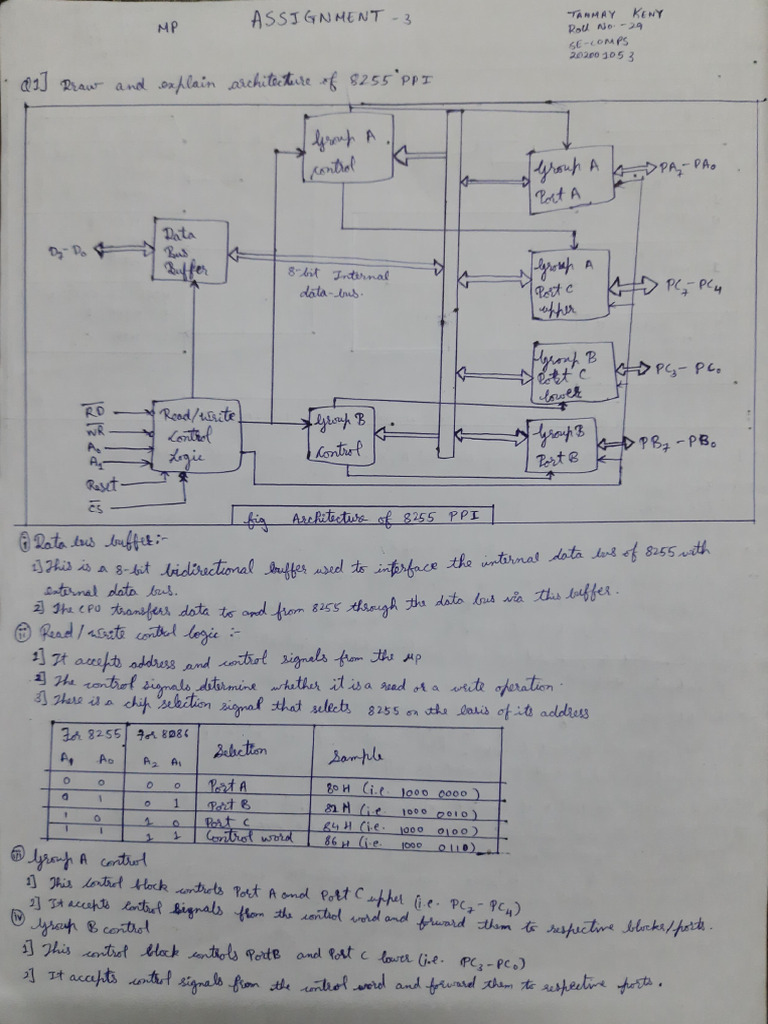 MP
ASSIGNMENT - 3
TANMAY KENY
Roll No. - 29
SE-COMPS
202001053
Q1] Draw and explain architecture of 8255 PPI
Group A control
Group A Port A
PA7 - PA0
Data Bus Buffer
D7 - D0
8-bit Internal data-bus.
Group A Port C upper
PC7 - PC4
Group B Port C lower
PC3 - PC0
R̅D̅
W̅R̅
A0
A1
Reset
C̅S̅
Read/Write Control Logic
Group B Control
Group B Port B
PB7 - PB0
fig Architecture of 8255 PPI
i) Data bus buffer:-
1] This is a 8-bit bidirectional buffer used to interface the internal data bus of 8255 with
external data bus.
2] The CPU transfers data to and from 8255 through the data bus via this buffer.
ii) Read / Write control logic :-
1] It accepts address and control signals from the μp
2] The control signals determine whether it is a read or a write operation.
3] There is a chip selection signal that selects 8255 on the basis of its address
For 8255 For 8086 Selection Sample
A1 A0 A2 A1
0 0 0 0 Port A 80 H (i.e. 1000 0000)
0 1 0 1 Port B 82 H (i.e. 1000 0010)
1 0 1 0 Port C 84 H (i.e. 1000 0100)
1 1 1 1 Control word 86 H (i.e. 1000 0110)
iii) Group A control
1] This control block controls Port A and Port C upper (i.e. PC7 - PC4)
2] It accepts control signals from the control word and forward them to respective blocks/ports.
iv) Group B control
1] This control block controls Port B and Port C lower (i.e. PC3 - PC0)
2] It accepts control signals from the control word and forward them to respective ports.